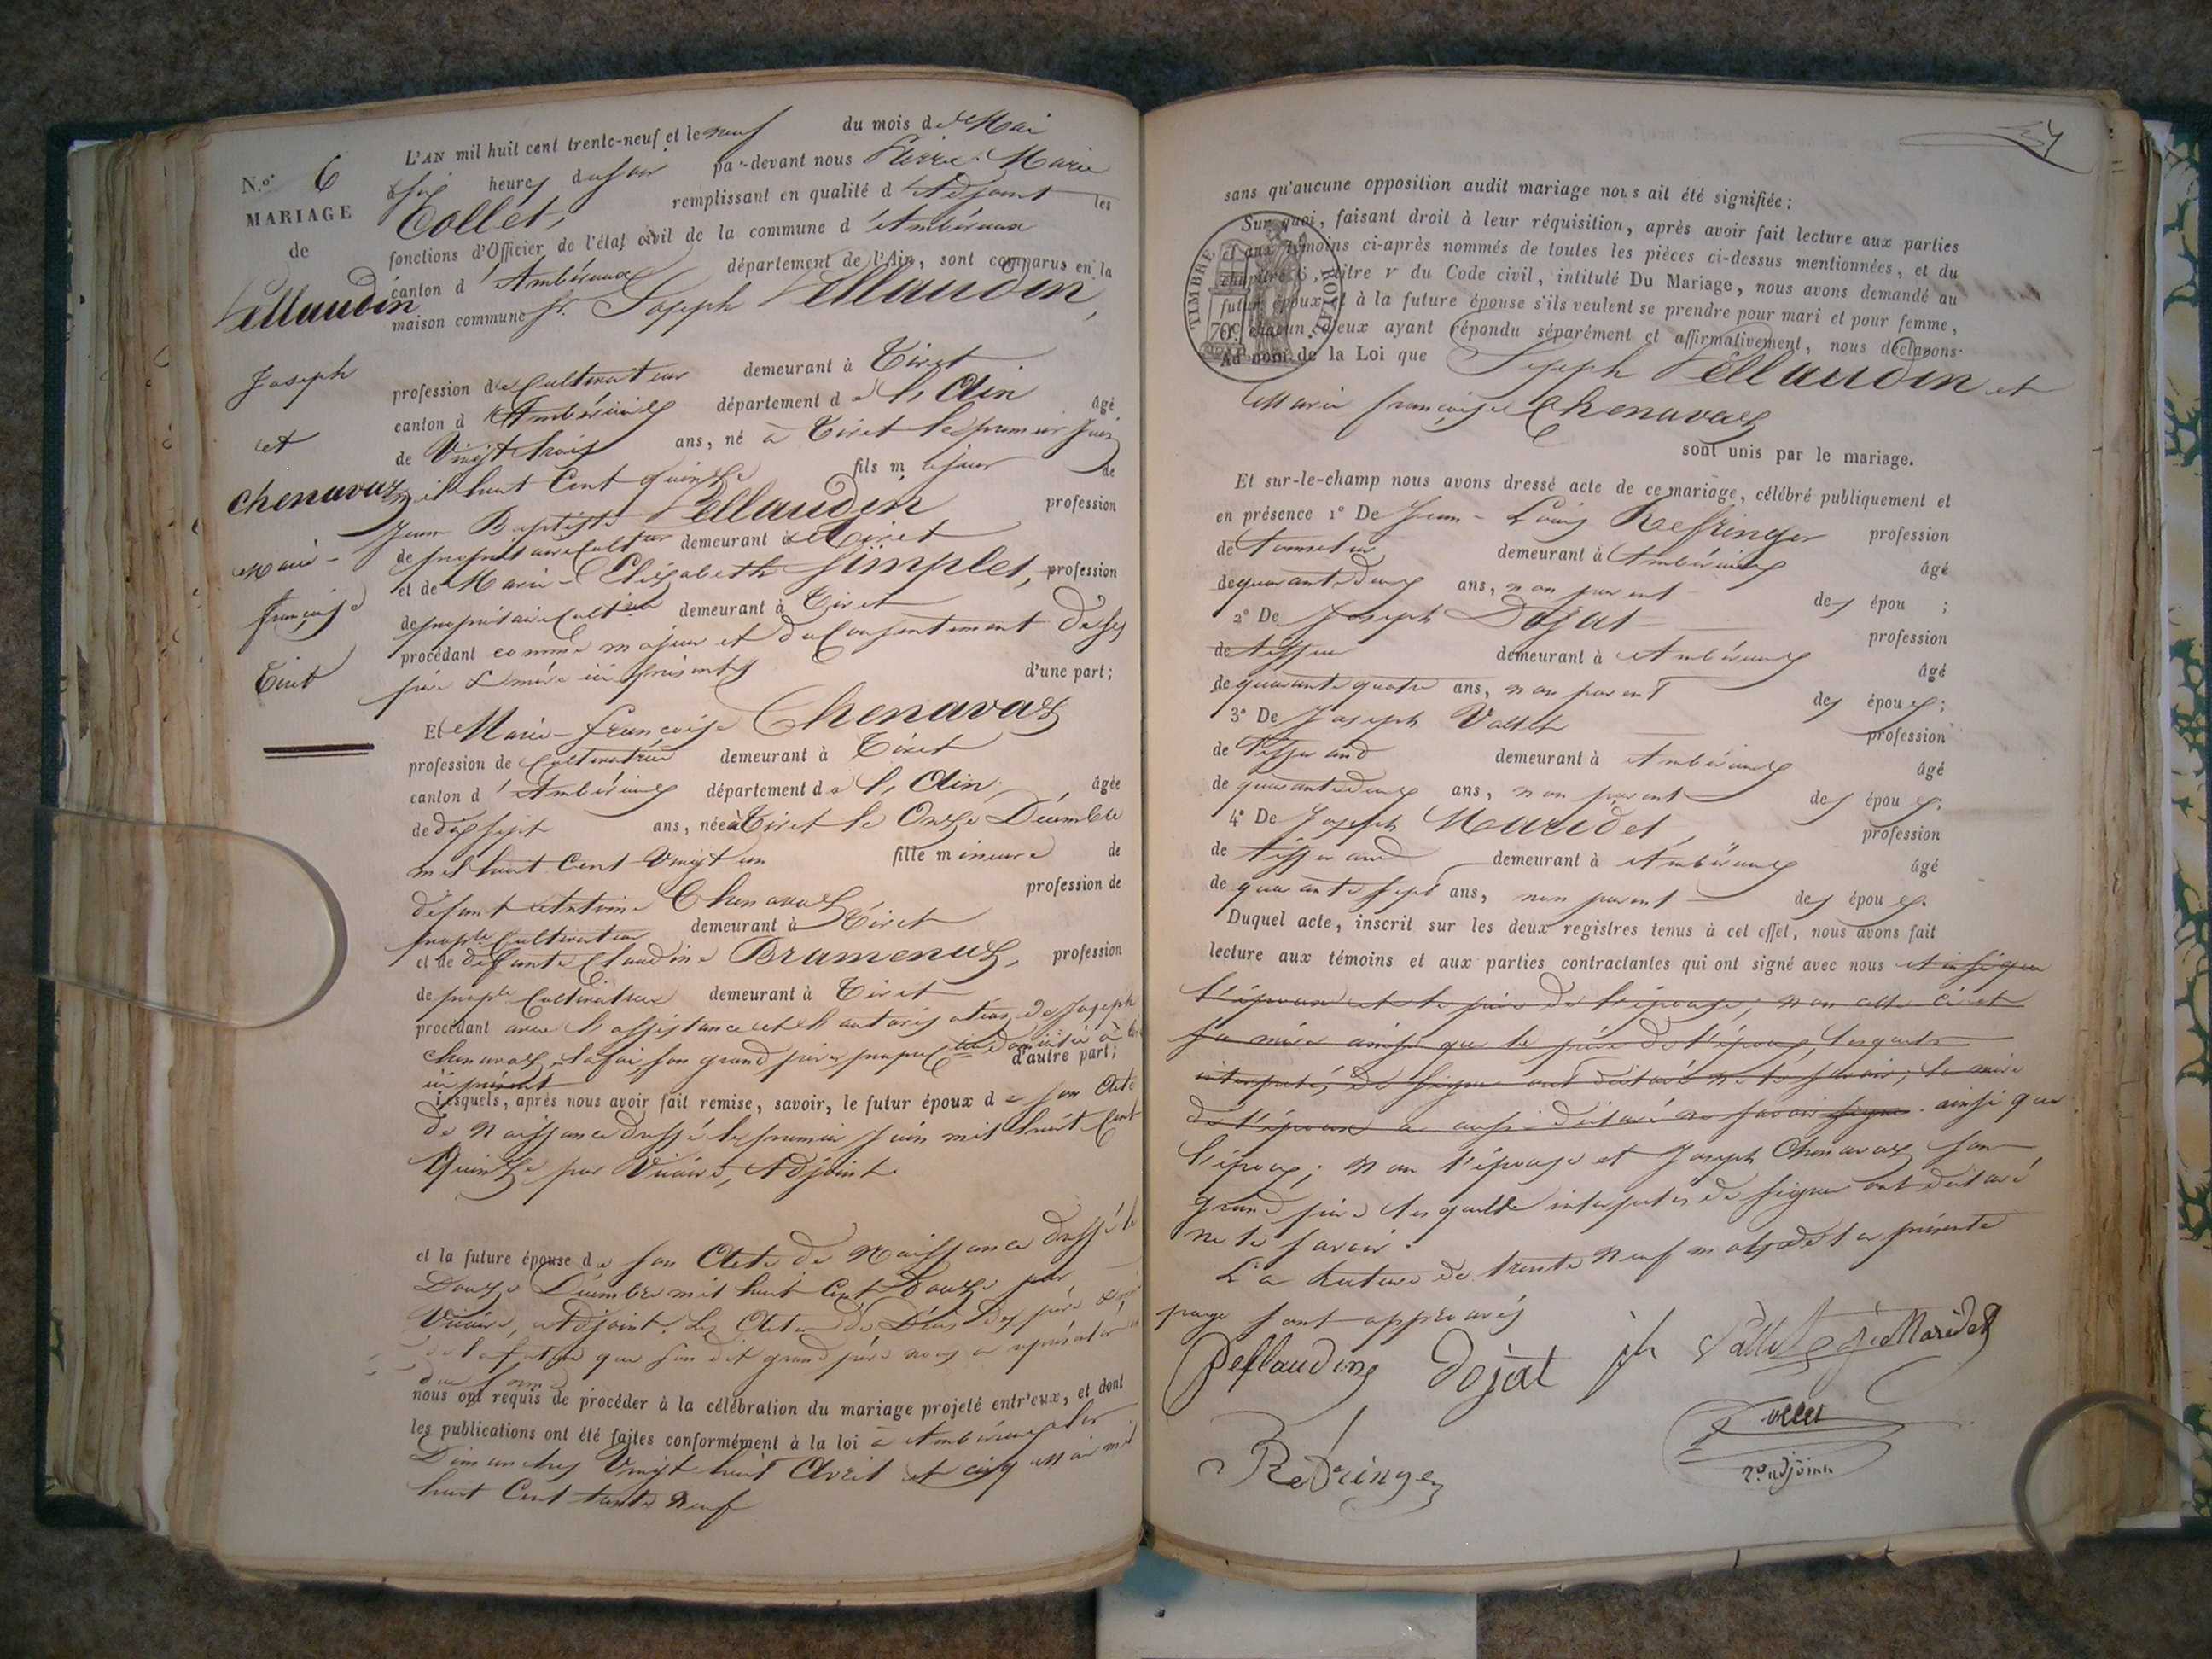 N.º 6
MARIAGE
de
Pellaudin
Joseph
et
Chenavaz
Marie-
françoise
Tiret
L'AN mil huit cent trente-neuf et le neuf du mois de Mai
à six heures du soir par-devant nous Pierre Marie
Collet, remplissant en qualité d'Adjoint les
fonctions d'Officier de l'état civil de la commune d'Ambérieux
canton d'Ambérieux département de l'Ain, sont comparus en la
maison commune sr. Joseph Pellaudin,
profession de Cultivateur demeurant à Tiret
canton d'Ambérieux département de l'Ain âgé
de Vingt trois ans, né à Tiret le premier Juin
mil huit Cent quinze fils majeur de
Jean Baptiste Pellaudin profession
de propriétaire Cultr demeurant à Tiret
et de Marie-Elizabeth Simplet, profession
de propriétaire Cultrice demeurant à Tiret
procédant comme majeur et du Consentement de ses
père & mère ici présents d'une part;
Et Marie-françoise Chenavaz
profession de Cultivatrice demeurant à Tiret
canton d'Ambérieux département de l'Ain, âgée
de dix sept ans, née à Tiret le Onze Décembre
mil huit Cent Vingt un fille mineure de
défunt Antoine Chenavaz profession de
propre Cultivateur demeurant à Tiret
et de défunte Claudine Brumenuz, profession
de propre Cultivatrice demeurant à Tiret
procédant avec l'assistance et l'autorisation de Joseph
Chenavaz son grand père d'autre part;
ici présent
lesquels, après nous avoir fait remise, savoir, le futur époux de son Acte
de Naissance dressé le premier Juin mil huit Cent
Quinze par Vicaire, Adjoint.
et la future épouse de son Acte de Naissance dressé le
Douze Décembre mil huit Cent Douze par
Vicaire, Adjoint. Les Actes de Décès des père & mère
de la future que son dit grand père nous a représentés en
due forme
nous ont requis de procéder à la célébration du mariage projeté entr'eux, et dont
les publications ont été faites conformément à la loi à Ambérieux les
Dimanches Vingt huit Avril et cinq Mai mil
huit Cent trente neuf
sans qu'aucune opposition audit mariage nous ait été signifiée;
Sur quoi, faisant droit à leur réquisition, après avoir fait lecture aux parties
et aux témoins ci-après nommés de toutes les pièces ci-dessus mentionnées, et du
chapitre 6, titre v du Code civil, intitulé Du Mariage, nous avons demandé au
futur époux et à la future épouse s'ils veulent se prendre pour mari et pour femme,
et chacun d'eux ayant répondu séparément et affirmativement, nous déclarons
Au nom de la Loi que Joseph Pellaudin et
Marie françoise Chenavaz
sont unis par le mariage.
TIMBRE ROYAL
70c
Et sur-le-champ nous avons dressé acte de ce mariage, célébré publiquement et
en présence 1º De Jean-Louis Refringer profession
de tonnelier demeurant à Ambérieux âgé
de quarante deux ans, non parent des épou ;
2º De Joseph Dojat profession
de tisseur demeurant à Ambérieux âgé
de quarante quatre ans, non parent des époux;
3º De Joseph Vallet profession
de Tisserand demeurant à Ambérieux âgé
de quarante deux ans, non parent des époux;
4º De Joseph Maridet, profession
de tisserand demeurant à Ambérieux âgé
de quarante sept ans, non parent des époux.
Duquel acte, inscrit sur les deux registres tenus à cet effet, nous avons fait
lecture aux témoins et aux parties contractantes qui ont signé avec nous et ainsi que
l'époux et le père de l'épouse; non celle ci et
sa mère ainsi que le père de l'époux, lesquels
interpelés de signer ont déclaré ne le savoir; la mère
de l'époux a aussi déclaré ne savoir signer. ainsi que
l'époux; non l'épouse et Joseph Chenavaz son
grand père lesquels interpelés de signer ont déclaré
ne le savoir.
La Rature de trente Neuf mots de la présente
page sont approuvés
Pellaudin Dojat jh Vallet je Maridet
Refringer
Collet
adjoint